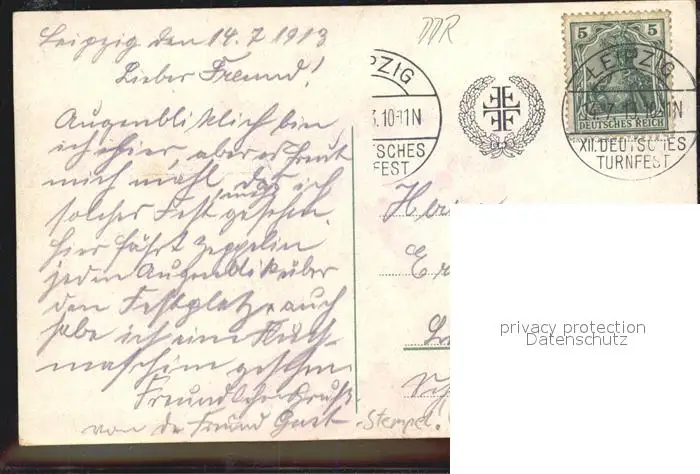 Leipzig den 14.7 1913
Lieber Freund!
Augenbliklich bin
ich hier, aber es freut
mich mahl, das ich
solches Fest gesehen.
hier fährt Zeppelin
jeden Augenblik über
den Festplatz, auch
habe ich eine Flug-
maschim gesehen
Freundlicher Gruß
von de Freund Gust
DDR
LEIPZIG
3.10-11N
TSCHES
FEST
5 5
DEUTSCHES REICH
LEIPZIG
14.7. 10-11N
XII. DEUTSCHES
TURNFEST
Stempel!
privacy protection
Datenschutz